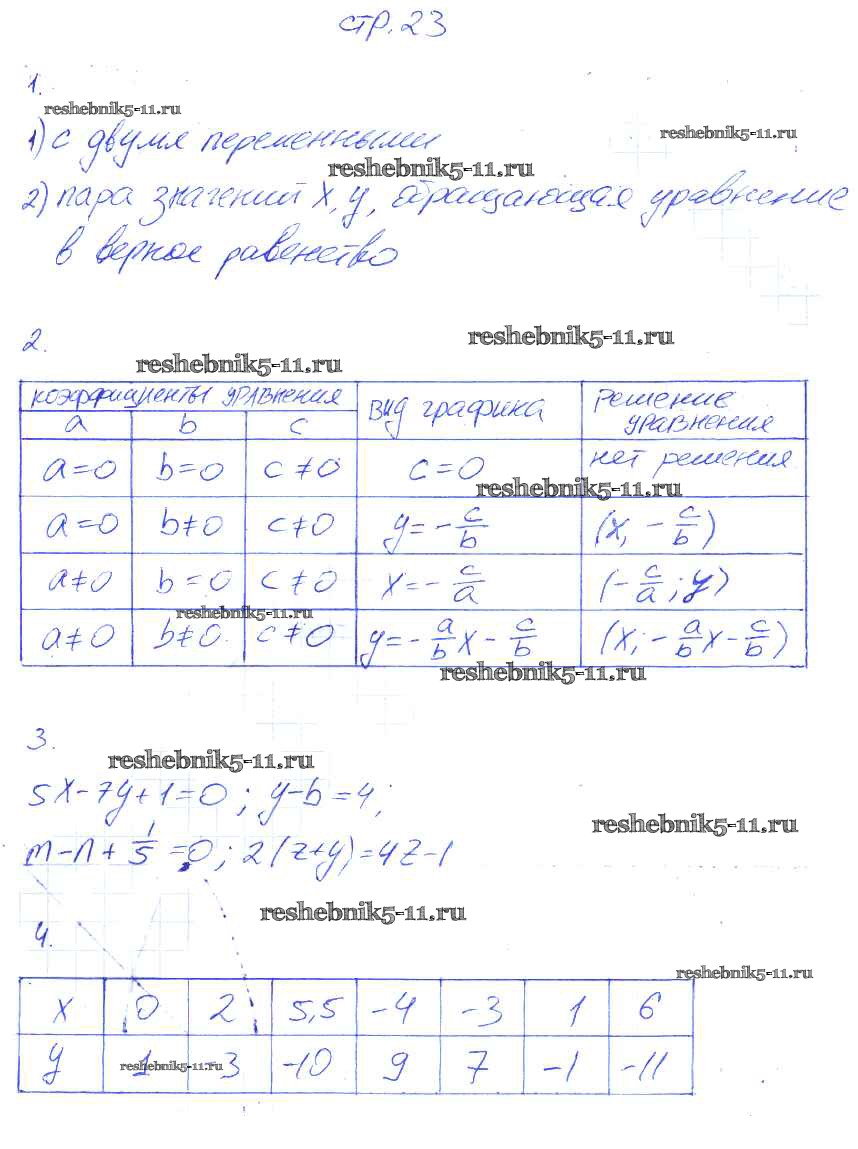 стр. 23
1.
reshebnik5-11.ru
reshebnik5-11.ru
1) с двумя переменными
reshebnik5-11.ru
2) пара значений x, y, обращающая уравнение
в верное равенство
2.
reshebnik5-11.ru
reshebnik5-11.ru
коэффициенты уравнения | вид графика | решение уравнения
a | b | c
a=0 | b=0 | c≠0 | c=0 | нет решения
reshebnik5-11.ru
a=0 | b≠0 | c≠0 | y=-c/b | (x, -c/b)
a≠0 | b=0 | c≠0 | x=-c/a | (-c/a; y)
reshebnik5-11.ru
a≠0 | b≠0 | c≠0 | y=-a/b x - c/b | (x, -a/b x - c/b)
reshebnik5-11.ru
3.
reshebnik5-11.ru
5x-7y+1=0; y-b=4;
reshebnik5-11.ru
m-n+1/5=0; 2(z+y)=4z-1
reshebnik5-11.ru
4.
reshebnik5-11.ru
x | 0 | 2 | 5,5 | -4 | -3 | 1 | 6
y | 1 | -3 | -10 | 9 | 7 | -1 | -11
reshebnik5-11.ru